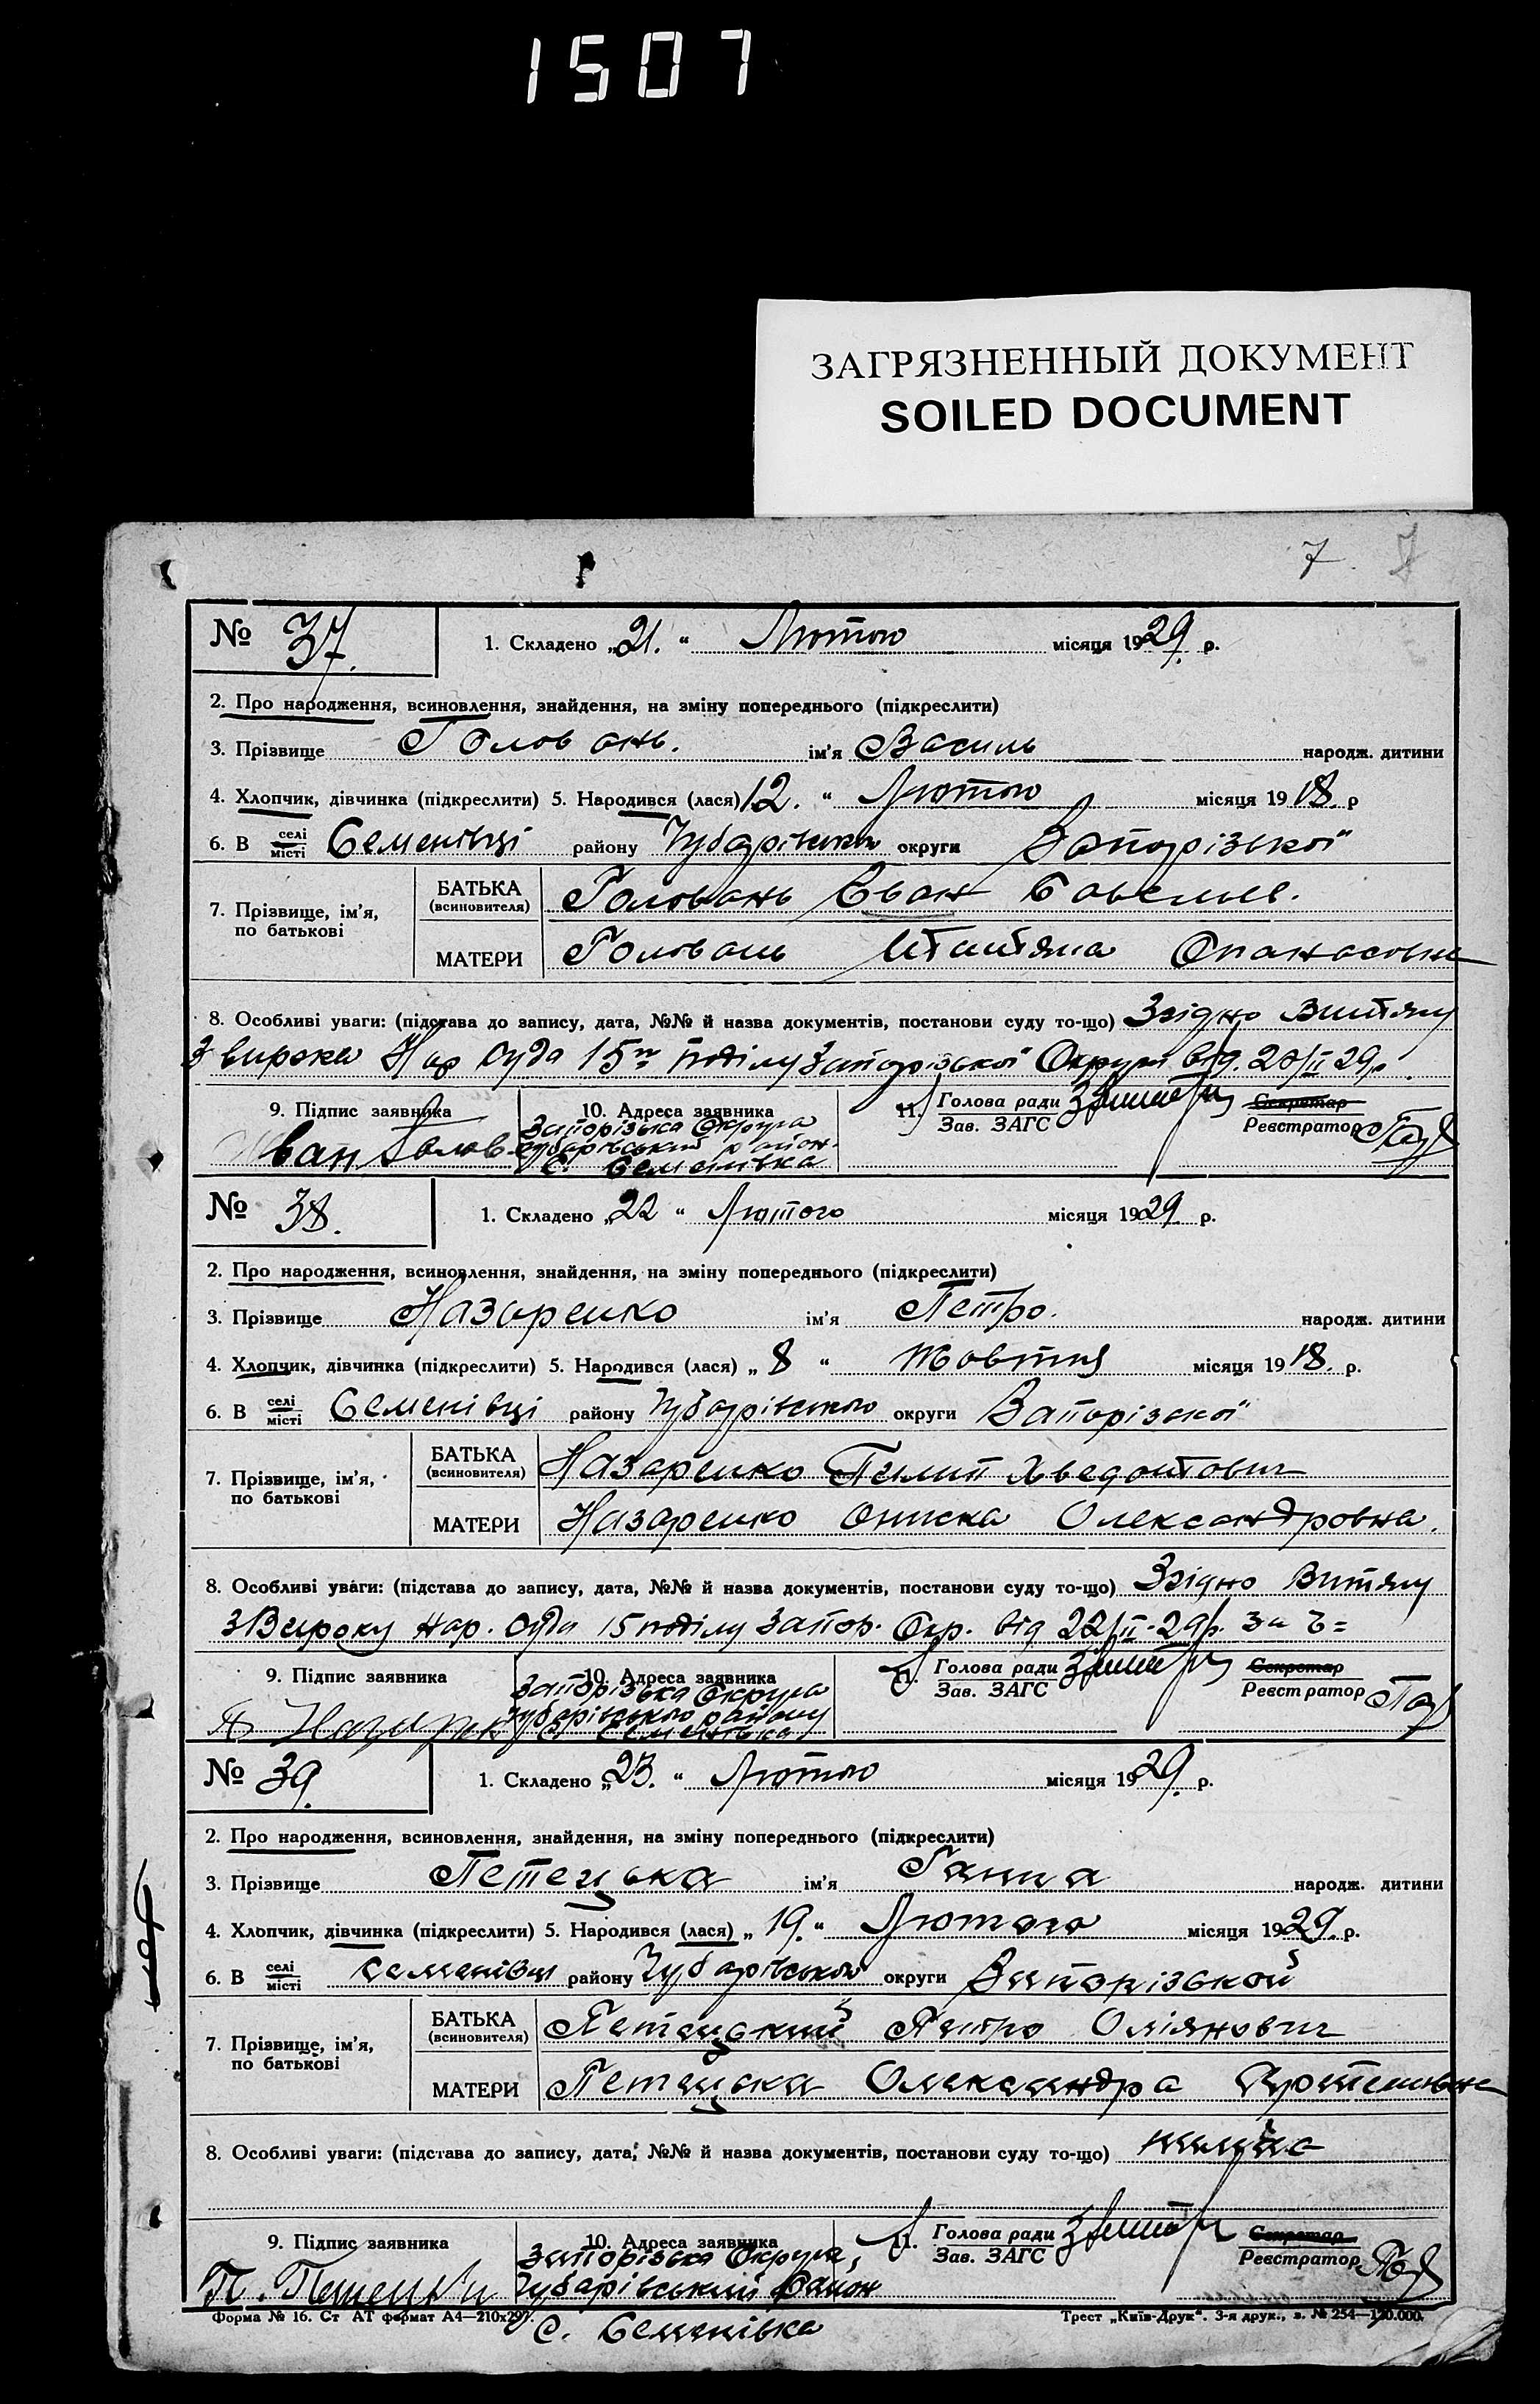 1507
ЗАГРЯЗНЕННЫЙ ДОКУМЕНТ
SOILED DOCUMENT
7
№ 37. 1. Складено „21.“ Лютого місяця 1929. р.
2. Про народження, всиновлення, знайдення, на зміну попереднього (підкреслити)
3. Прізвище Головань. ім'я Василь народж. дитини
4. Хлопчик, дівчинка (підкреслити) 5. Народився (лася) 12. “ Лютого місяця 1918. р
6. В селі місті Семенівці району Чубарівського округи Запорізької
7. Прізвище, ім'я, по батькові
БАТЬКА (всиновителя) Головань Іван Савельев.
МАТЕРИ Головань Тантяна Опанасовна
8. Особливі уваги: (підстава до запису, дата, №№ й назва документів, постанови суду то-що) Згідно Витягу
З вирока Нар Суда 15го поділу Запорізької Округи від. 20/II 29р.
9. Підпис заявника 10. Адреса заявника 11. Голова ради Зав. ЗАГС Секретар Реєстратор
Іван Голов Запорізька Округа
Чубарівський район.
С. Семенівка
№ 38. 1. Складено „22 “ Лютого місяця 1929. р.
2. Про народження, всиновлення, знайдення, на зміну попереднього (підкреслити)
3. Прізвище Назаренко ім'я Петро. народж. дитини
4. Хлопчик, дівчинка (підкреслити) 5. Народився (лася) „ 8 “ Жовтня місяця 1918. р.
6. В селі місті Семенівці району Чубарівського округи Запорізької
7. Прізвище, ім'я, по батькові
БАТЬКА (всиновителя) Назаренко Пилип Хведотович
МАТЕРИ Назаренко Ониска Олександровна.
8. Особливі уваги: (підстава до запису, дата, №№ й назва документів, постанови суду то-що) Згідно Витягу
З Вироку Нар. Суда 15 поділу Запор. Окр. від 22/II-29р. за
9. Підпис заявника 10. Адреса заявника 11. Голова ради Зав. ЗАГС Секретар Реєстратор
Запорізька Округа
Чубарівського району
С. Семенівка
№ 39. 1. Складено „23. “ Лютого місяця 1929. р.
2. Про народження, всиновлення, знайдення, на зміну попереднього (підкреслити)
3. Прізвище Петецька ім'я Ганна народж. дитини
4. Хлопчик, дівчинка (підкреслити) 5. Народився (лася) „ 19. “ Лютого місяця 1929. р.
6. В селі місті Семенівци району Чубарівського округи Запорізькой
7. Прізвище, ім'я, по батькові
БАТЬКА (всиновителя) Петецький Петро Оміянович
МАТЕРИ Петецька Олександра
8. Особливі уваги: (підстава до запису, дата, №№ й назва документів, постанови суду то-що)
9. Підпис заявника 10. Адреса заявника 11. Голова ради Зав. ЗАГС Секретар Реєстратор
П. Петецьки Запорізька Округа,
Чубарівський Район
С. Семенівка
Форма № 16. Ст АТ формат А4—210х297. Трест „Київ-Друк“. 3-я друк., з. № 254—120.000.